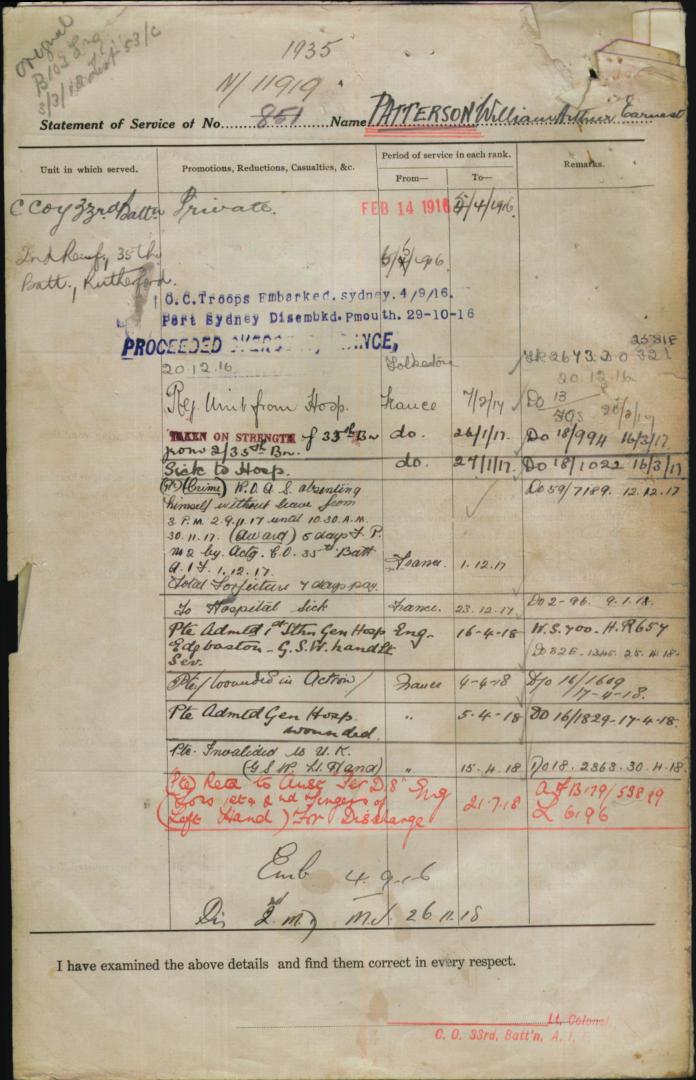 Original
B103 Lng
3/3/18 53/C
1935
N/11919
Statement of Service of No. 851 Name PATTERSON William Arthur Earnest
Unit in which served. Promotions, Reductions, Casualties, &c. Period of service in each rank. Remarks.
From— To—
C Coy 33rd Battn Private. FEB 14 1916 5/4/1916
2nd Reinfs, 35th
Batt., Rutherford.
O.C.Troops Embarked. Sydney. 4/9/16.
Port Sydney Disembkd. Pmouth. 29-10-16
PROCEEDED OVERSEAS, FRANCE,
20.12.16 Folkestone 2673 D.O. 32
20.12.16
Rej. Unit from Hosp. France 7/2/17 Do 13
TAKEN ON STRENGTH of 35th Bn do. 26/1/17. Do 18/994 16/3/17
from 2/35th Bn.
Sick to Hosp. do. 27/1/17. Do 18/1022 16/3/17
(Crime) W.O.A.S. absenting Do 59/7189. 12.12.17
himself without leave from
3 P.M. 29.11.17 until 10.30 A.M.
30.11.17. (Award) 5 days F.P.
No 2 by Actg. C.O. 35th Batt
A.I.F. 1.12.17. France 1.12.17
Total Forfeiture 7 days pay.
To Hospital Sick France. 23.12.17 Do 2-96. 9.1.18.
Pte Admtd 1st Sthn Gen Hosp Eng- 16-4-18 W.S. 700. H.R657
Edgbaston - G.S.W. hand Lt 25.4.18.
Sev.
Pte/ Wounded in Action/ France 4-4-18 D/o 16/1609
17-4-18.
Pte Admtd Gen Hosp. " 5.4-18 DO 16/1829-17-4-18.
wounded.
Pte. Invalided to U.K. " 15.4.18 Do 18. 2363. 30.4.18.
(G.S.W. Lt. Hand)
(Pte) Retd to Aust Per D 8" Eng 21.7.18 A.F.B179/538
(Loss 1st & 2nd Fingers of L 6196
Left Hand) For Discharge
Emb 4.9.16
Dis 2nd M.D 26.11.18
I have examined the above details and find them correct in every respect.
Lt. Colonel
C. O. 33rd, Batt'n, A. I. F.